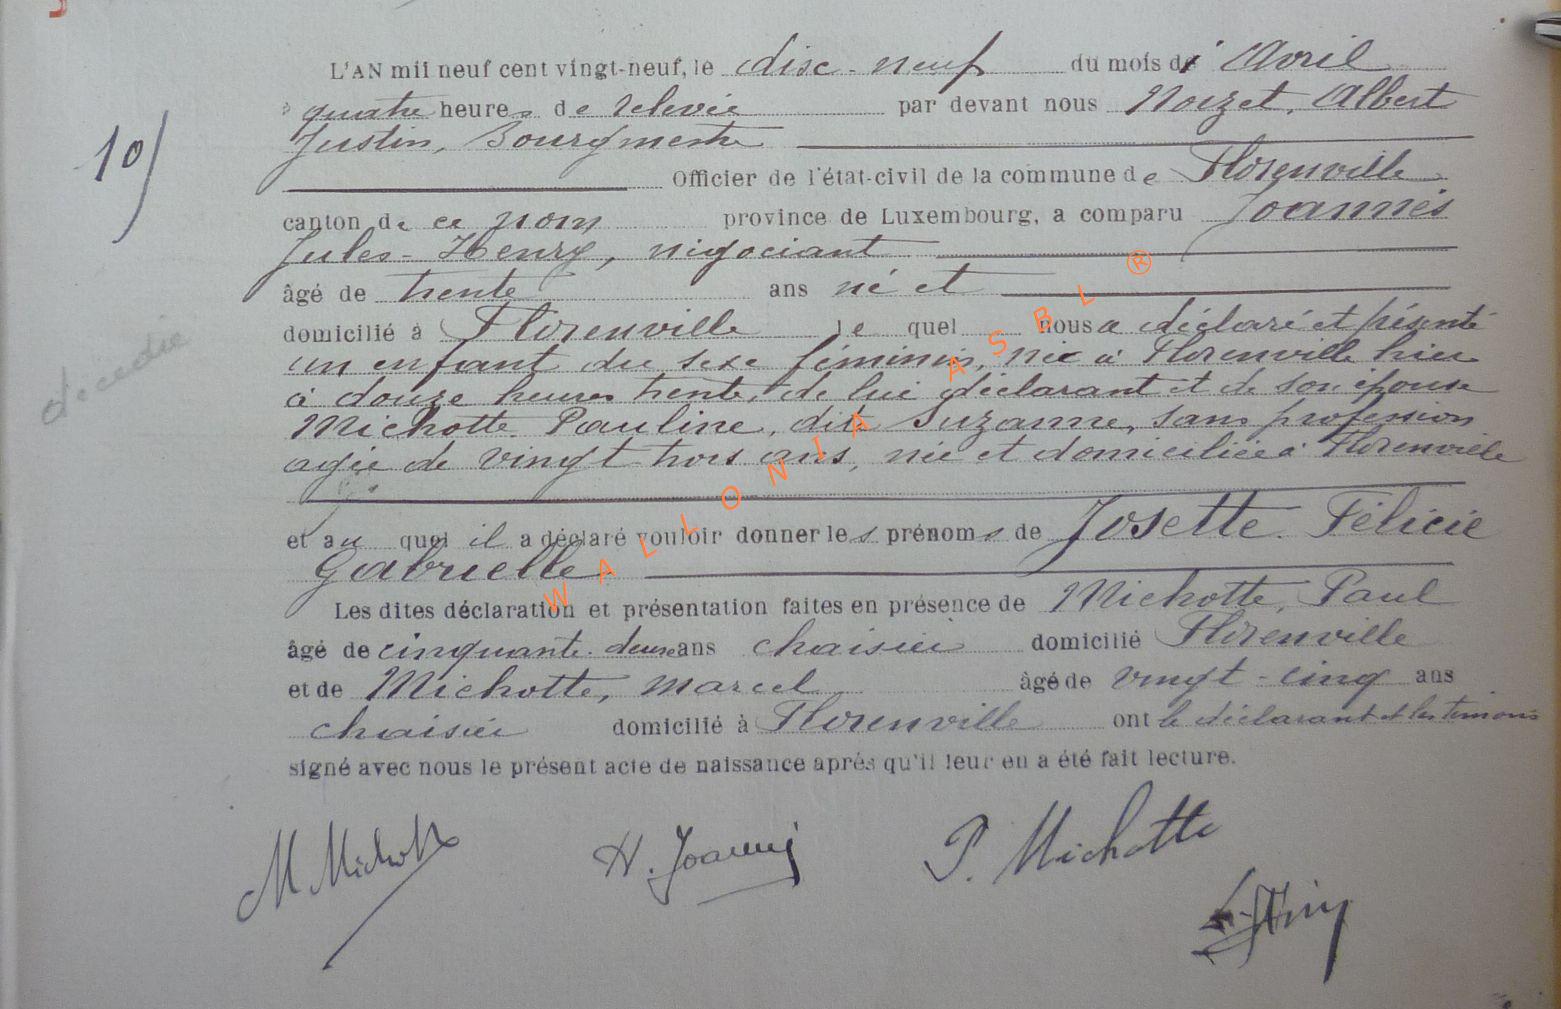 L'AN mil neuf cent vingt-neuf, le disc-neuf du mois d' Avril
quatre heures de relevée par devant nous Nozet, Albert
Justin, Bourgmestre
10/
Officier de l'état-civil de la commune de Florenville
canton de ce nom province de Luxembourg, a comparu Joannès
Jules-Henry, négociant
âgé de trente ans né et
domicilié à Florenville le quel nous a déclaré et présenté
un enfant du sexe féminin, née à Florenville hier
à douze heures trente, de lui déclarant et de son épouse
décédée
Michotte Pauline, dite Suzanne, sans profession
agée de vingt trois ans, née et domiciliée à Florenville
et au quel il a déclaré vouloir donner les prénoms de Josette Félicie
Gabrielle
Les dites déclaration et présentation faites en présence de Michotte, Paul
âgé de cinquante-deux ans chaisier domicilié Florenville
et de Michotte, Marcel âgé de vingt-cinq ans
chaisier domicilié à Florenville ont le déclarant et les témoins
signé avec nous le présent acte de naissance après qu'il leur en a été fait lecture.
M Michotte H. Joannès P. Michotte
WALLONIA ASBL ®